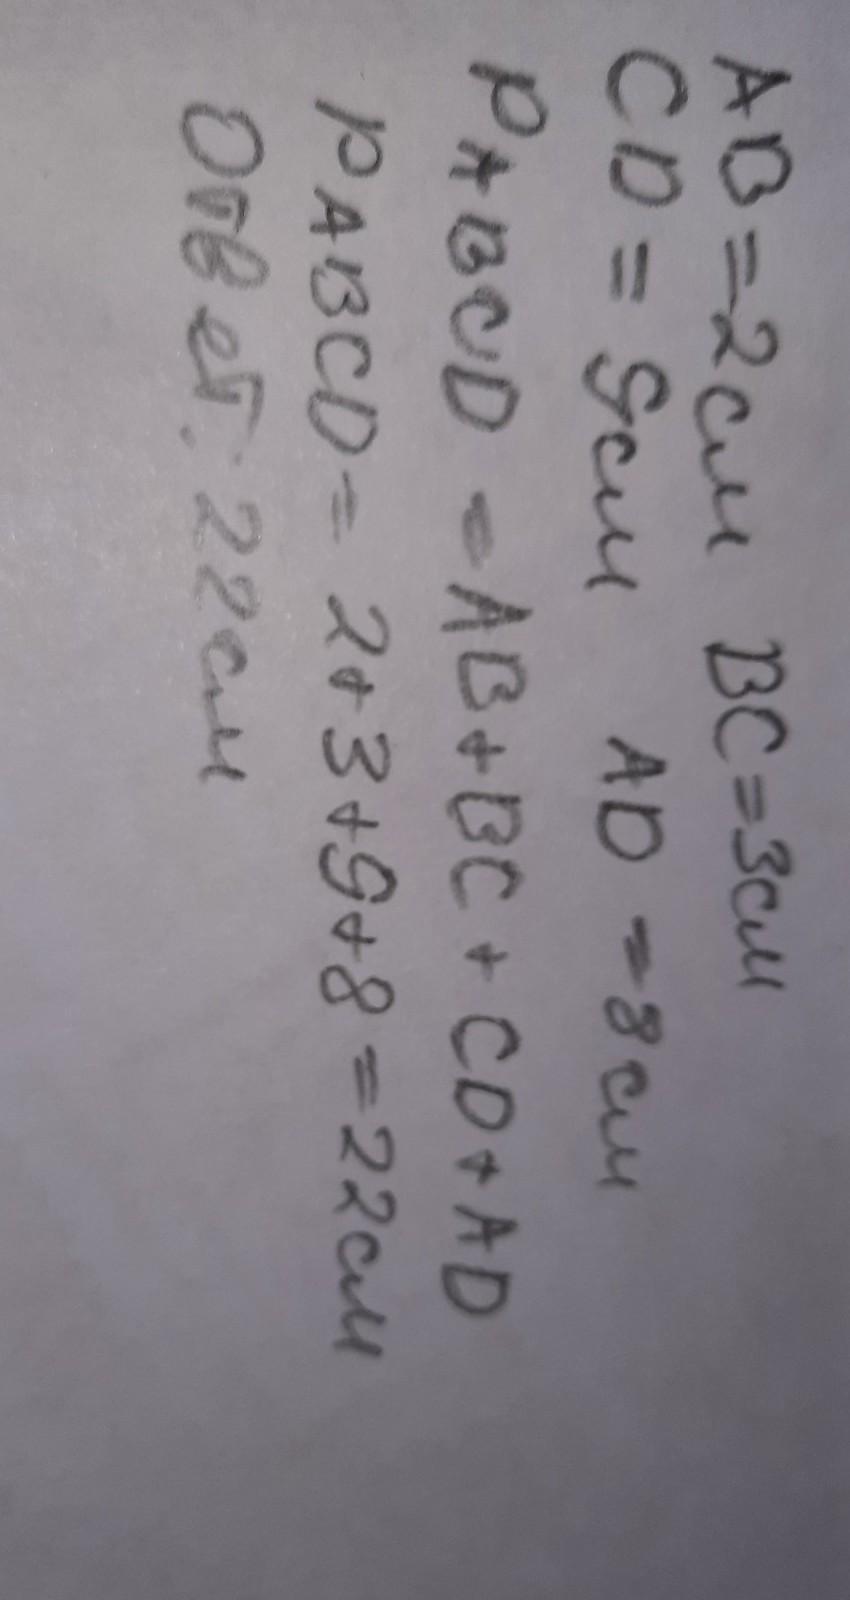 AB=2см BC=3см
CD=9см AD=8см
PABCD=AB+BC+CD+AD
PABCD=2+3+9+8=22см
Ответ: 22см